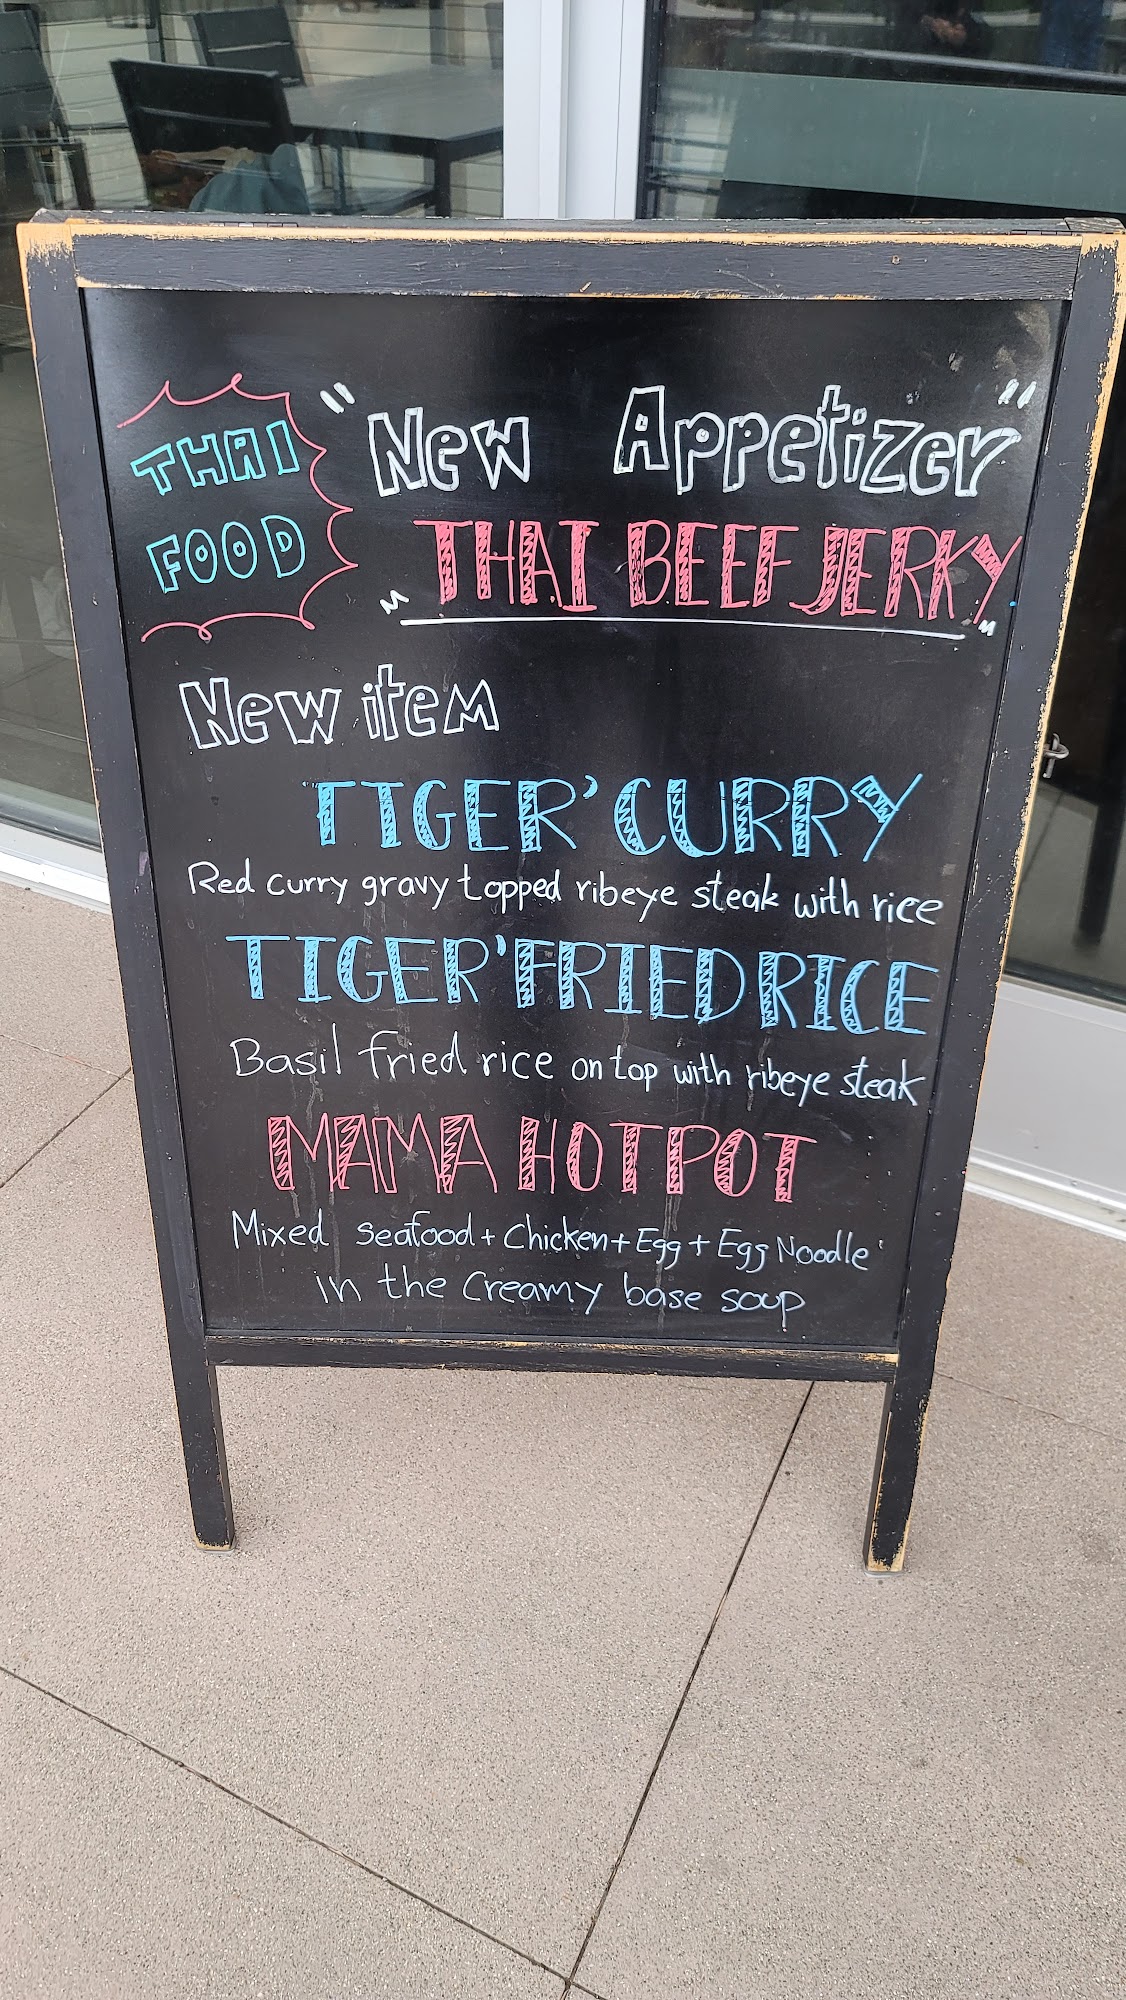 THAI
FOOD
"New Appetizer"
"THAI BEEF JERKY"
New item
TIGER' CURRY
Red curry gravy topped ribeye steak with rice
TIGER' FRIED RICE
Basil fried rice on top with ribeye steak
MAMA HOTPOT
Mixed seafood + Chicken + Egg + Egg Noodle
in the Creamy base soup